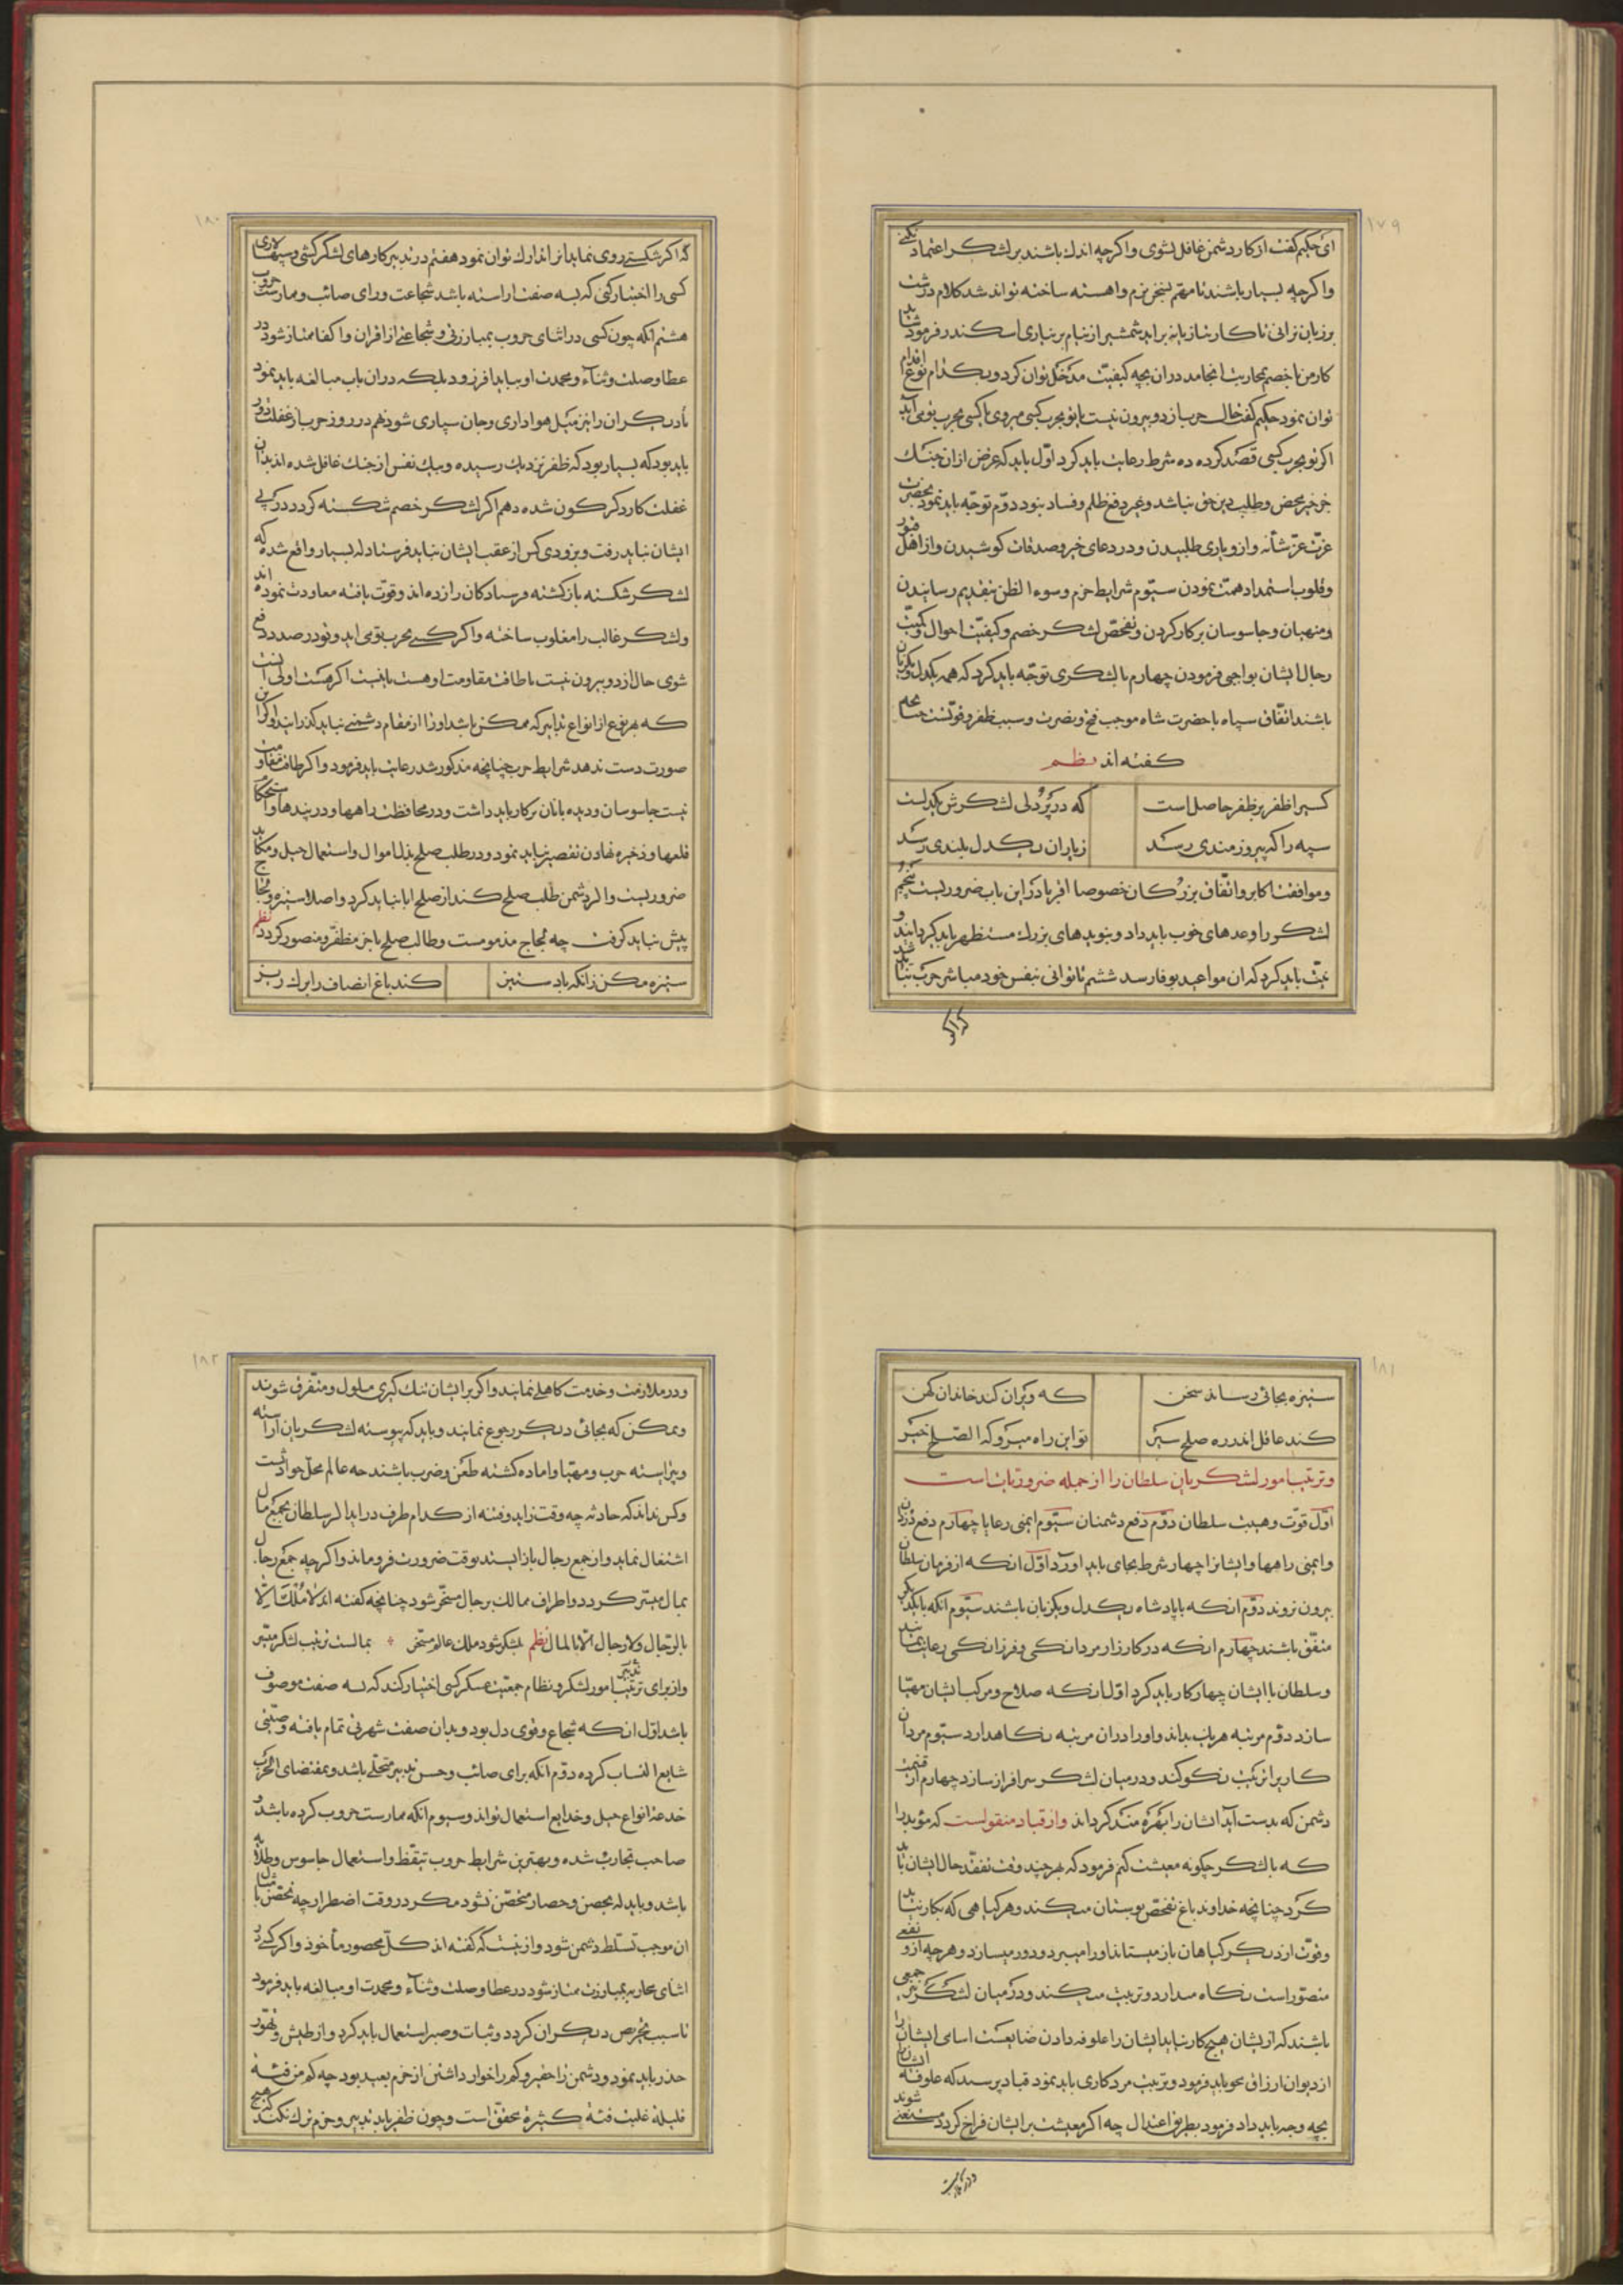 ١٧٩
ای حکیم کفت از کار دشمن غافل نشوی و اکرچه اندك باشند بر لشکر اعتماد نکنی
و اکرچه بسیار باشند تا مهم بسخن نرم و اهسته ساخته تواند شد کلام درشت
بر زبان نرانی تا کار بتازیانه براید شمشیر از نیام بر نیاری اسکندر فرمود شاید
کار من با خصم بمحاربت انجامد دران بچه کیفیت مدخل توان کرد و بکدام نوع اقدام
توان نمود حکیم کفت حال حرب از دو بیرون نیست یا تو بحرب کسی میروی یا کسی بحرب تو می آید
اکر تو بحرب کسی قصد کرده ده شرط رعایت باید کرد اول باید که غرض ازان جنك
جز خیر محض و طلب دین حق نباشد و غیر دفع ظلم و فساد نبود دوم توجه باید نمود بحضرت
عزت عز شأنه و ازو یاری طلبیدن و در دعای خیر و صدقات کوشیدن و از اهل قبور
و قلوب استمداد همت نمودن سیوم شرایط حزم و سوء الظن بتقدیم رسانیدن
و منهیان و جاسوسان بر کار کردن و تفحص لشکر خصم و کیفیت احوال و کمیت
رجال ایشان بواجبی فرمودن چهارم با لشکری توجه باید کرد که همه یکدل و یکزبان
باشند اتفاق سپاه با حضرت شاه موجب فتح و نصرت و سبب ظفر و قوتست چنانچه
کفته اند نظم
کسیرا ظفر بر ظفر حاصل است که در پردلی لشکرش یکدلست
سپه را که پیروزمندی رسد ز یاران یکدل بلندی رسد
و موافقت اکابر و اتفاق بزرکان خصوصا اقربا در این باب ضروریست پنجم
لشکر را وعدهای خوب باید داد و بنویدهای بزرك مستظهر باید کردانید و
نیت باید کرد که ان مواعید بوفا رسد ششم تا توانی بنفس خود مباشر حرب نباید شد
که اکر
١٨٠
که اکر شکستی روی نماید انرا تدارك توان نمود هفتم در تدبیر کارهای لشکر کشی و سپهسالاری
کسی را اختیار کنی که بسه صفت اراسته باشد شجاعت و رای صائب و ممارست حروب
هشتم انکه چون کسی در اثنای حروب بمبارزتی و شجاعتی از اقران و اکفا ممتاز شود در
عطا و صلت و ثناء و محمدت او بباید افزود بلکه دران باب مبالغه باید نمود
تا دیکران را نیز میل هواداری و جان سپاری شود نهم در روز حرب از غفلت دور
باید بود که بسیار بود که ظفر نزدیك رسیده و بیك نفس از جنك غافل شده اند بدان
غفلت کار دکرکون شده دهم اکر لشکر خصم شکسته کردد در پی
ایشان نباید رفت و بزودی کس از عقب ایشان نباید فرستاد که بسیار واقع شده که
لشکر شکسته بازکشته و رسیادکان را زده اند و قوت یافته معاودت نموده اند
و لشکر غالب را مغلوب ساخته و اکر کسی بحرب تو می اید و تو در صدد دفع
شوی حال از دو بیرون نیست یا طاقت مقاومت او هست یا نیست اکر هست اولی انست
که بهر نوع از انواع تدابیر که ممکن باشد او را از مقام دشمنی بباید کذرانید و اکر این
صورت دست ندهد شرایط حرب چنانچه مذکور شد رعایت باید فرمود و اکر طاقت مقاومت
نیست جاسوسان و دیده بانان بر کار باید داشت و در محافظت راهها و دربندها و استحکام
قلعها و ذخیره نهادن تقصیر نباید نمود و در طلب صلح بذل اموال و استعمال حیل و مکاید
ضروریست و اکر دشمن طلب صلح کند از صلح ابا نباید کرد و اصلا ستیزه و لجاج
پیش نباید کرفت چه لجاج مذمومست و طالب صلح باجر مظفر و منصور کردد نظم
ستیزه مکن زانکه باد ستیز کند باغ انصاف را برك ریز
١٨١
ستیزه بجائی رساند سخن که ویران کند خاندان کهن
کند عاقل اندر ره صلح سیر تو این راه میرو که الصلح خیر
و ترتیب امور لشکریان سلطان را از جمله ضروریات است
اول قوت و هیبت سلطان دوم دفع دشمنان سیوم ایمنی رعایا چهارم دفع دزدان
و ایمنی راهها و ایشانرا چهار شرط بجای باید اورد اول انکه از فرمان سلطان
بیرون نروند دوم انکه با پادشاه یکدل و یکزبان باشند سیوم انکه با یکدیکر
متفق باشند چهارم انکه در کارزار مردانکی و فرزانکی رعایت نمایند
و سلطان با ایشان چهار کار باید کرد اول انکه صلاح و مرکب ایشان مهیا
سازد دوم مرتبه هریك بداند و او را دران مرتبه نکاهدارد سیوم مردان
کار را تربیت نکو کند و در میان لشکر سرافراز سازد چهارم از غنیمت
دشمن که بدست آید ایشان را بهره مند کرداند و از قباد منقولست که موبد را
که با لشکر چکونه معیشت کنم فرمود که بهر چند وقت تفقد حال ایشان باید
کرد چنانچه خداوند باغ تفحص بوستان میکند و هر کیاهی که بکار نیاید
و قوت از دیکر کیاهان باز میستاند او را میبرد و دور میسازد و هر چه ازو نفعی
متصور است نکاه میدارد و تربیت میکند و در میان لشکر نیز جمعی
باشند که از یشان هیچ کار نیاید ایشان را علوفه دادن ضایعست اسامی ایشان را
از دیوان ارزاق محو باید فرمود و تربیت مرد کاری باید نمود قباد پرسید که علوفه ایشان را
بچه وجه باید داد فرمود بطریق اعتدال چه اکر معیشت بر ایشان فراخ کردد مستغنی شوند
و در ملازمت
١٨٢
و در ملازمت و خدمت کاهلی نمایند و اکر بر ایشان تنك کیری ملول و متفرق شوند
و ممکن که بجائی دیکر رجوع نمایند و باید که پیوسته لشکریان آراسته
و پیراسته حرب و مهیا و اماده کشته طعن و ضرب باشند چه عالم محل حوادثست
و کس نداند که حادثه چه وقت زاید و فتنه از کدام طرف در اید اکر سلطان بجمع مال
اشتغال نماید و از جمع رجال باز ایستد بوقت ضرورت فرو ماند و اکرچه جمع رجال
بمال میسر کردد و اطراف ممالك برجال مسخر شود چنانچه کفته اند لا ملك الا
بالرجال ولا رجال الا بالمال نظم بلشکر شود ملك عالم مسخر * بمالست ترتیب لشکر میسر
و از برای ترتیب تدبیر امور لشکر و نظام جمعیت عسکر کسی اختیار کند که بسه صفت موصوف
باشد اول انکه شجاع و قوی دل بود و بدان صفت شهرتی تمام یافته و صیتی
شایع اکتساب کرده دوم انکه برای صائب و حسن تدبیر متحلی باشد و بمقتضای الحرب
خدعة انواع حیل و خدایع استعمال تواند و سیوم انکه ممارست حروب کرده باشد و
صاحب تجارب شده و بهترین شرایط حروب تیقظ و استعمال جاسوس و طلایه
باشد و باید که بحصن و حصار متحصن نشود مکر در وقت اضطرار چه تحصن با مثال
ان موجب تسلط دشمن شود و از نیست که کفته اند کل محصور مأخوذ و اکر کسی در
اثنای محاربه بمبارزت ممتاز شود در عطا و صلت و ثناء و محمدت او مبالغه باید فرمود
تا سبب تحریص دیکران کردد و ثبات و صبر استعمال باید کرد و از طیش و تهور
حذر باید نمود و دشمن را حقیر و کم را خوار داشتن از حزم بعید بود چه کم من فئة
قلیلة غلبت فئة کثیرة محقق است و چون ظفر یابد تدبیر و حزم ترك نکند که هیچ